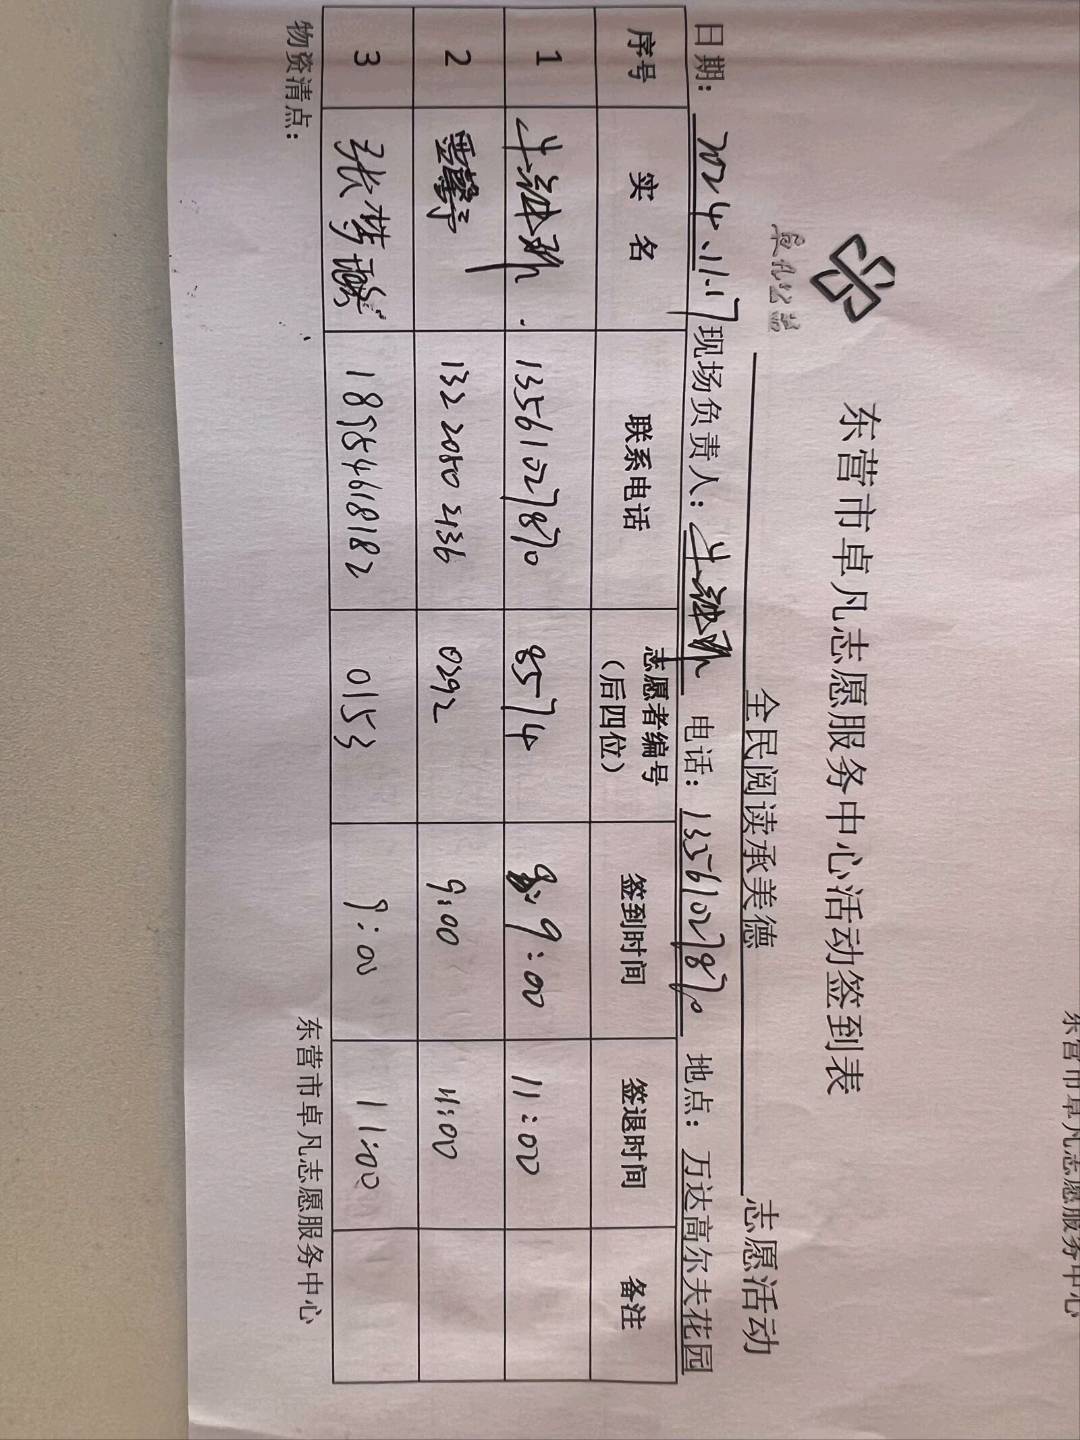 卓凡公益
东营市卓凡志愿服务中心活动签到表
全民阅读承美德 志愿活动
日期：2024.11.17 现场负责人： 电话：13561027870 地点：万达高尔夫花园
序号 实 名 联系电话 志愿者编号（后四位） 签到时间 签退时间 备注
1 13561027870 8574 9:00 11:00
2 132 2050 2136 0292 9:00 11:00
3 张梦 18954618182 0153 9:00 11:00
物资清点： 东营市卓凡志愿服务中心
东营市卓凡志愿服务中心